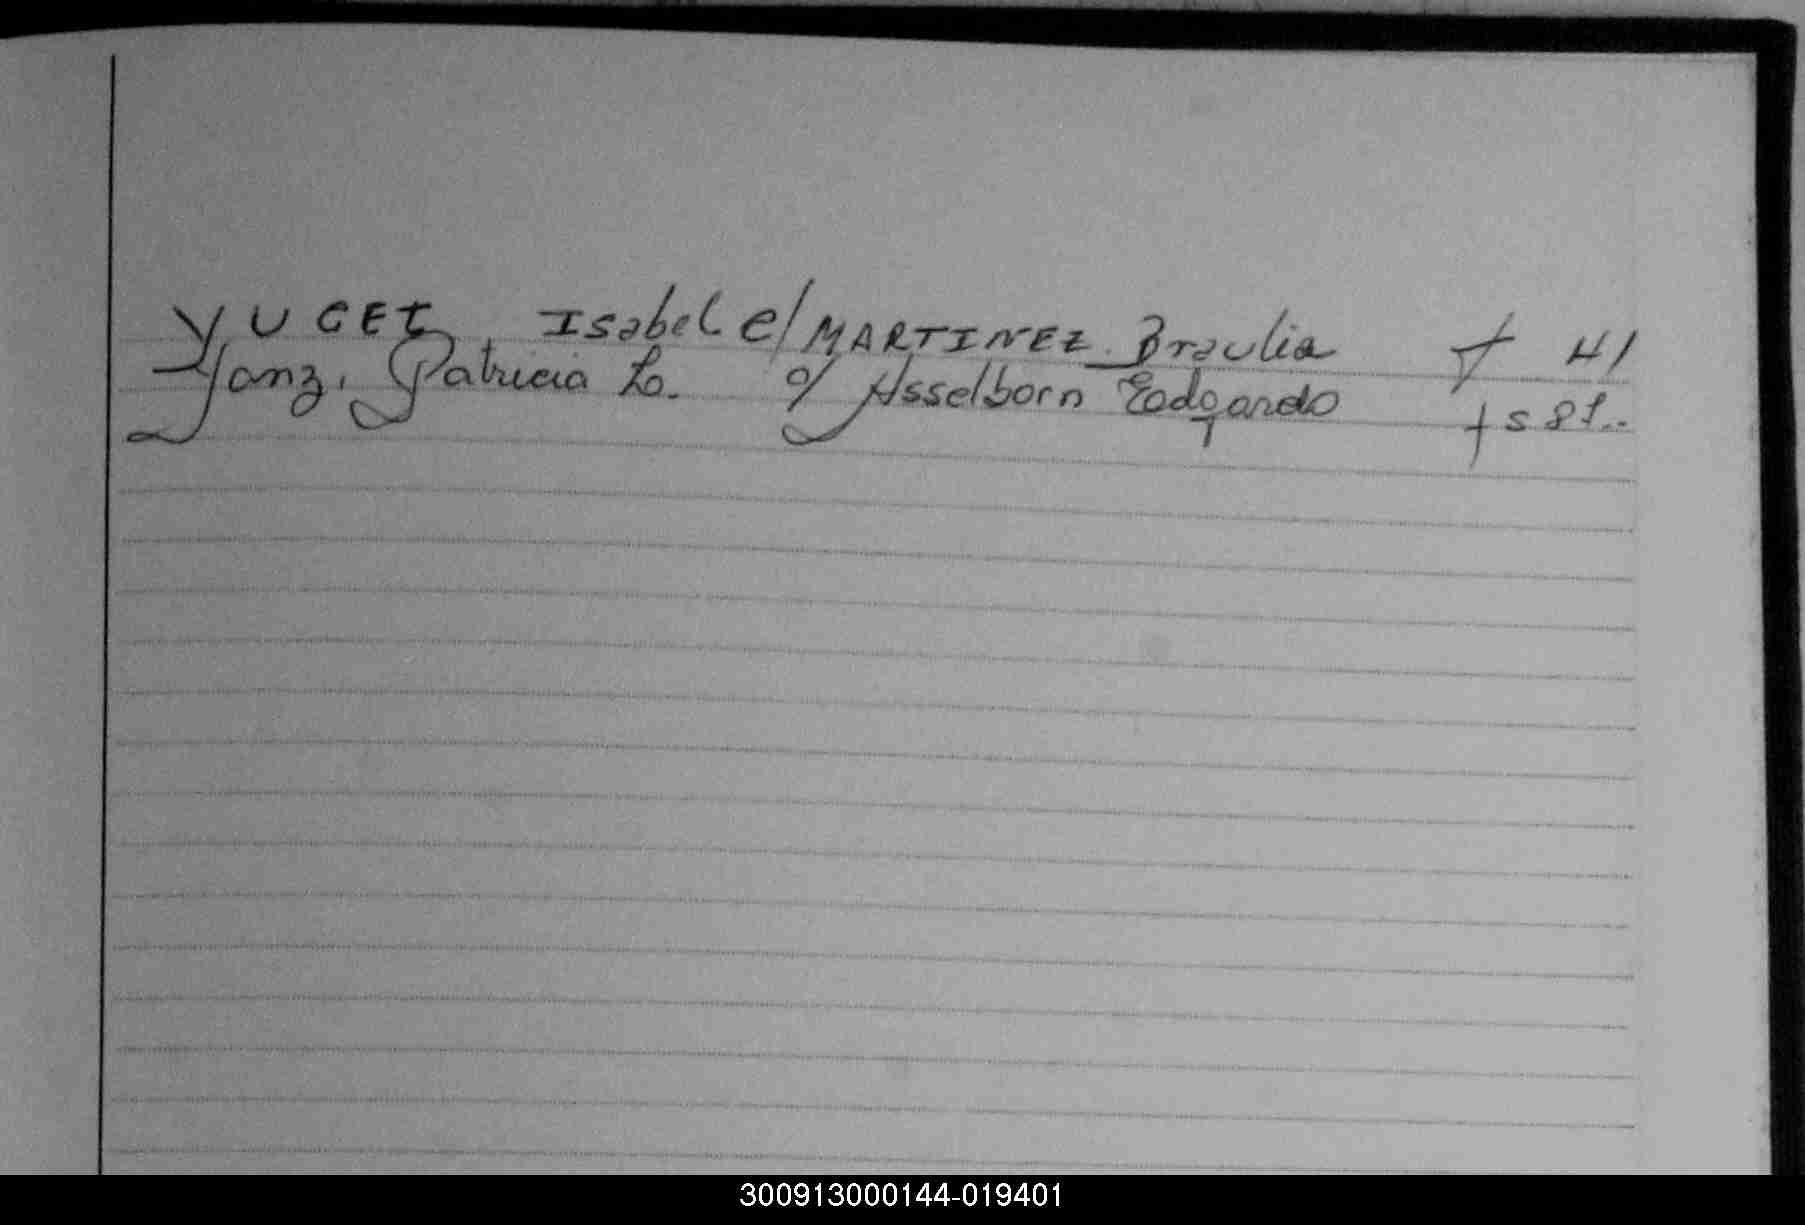 YUGET Isabel c/ MARTINEZ Braulia f 41
Yanz, Patricia L. c/ Asselborn Edgardo fs 81..
300913000144-019401